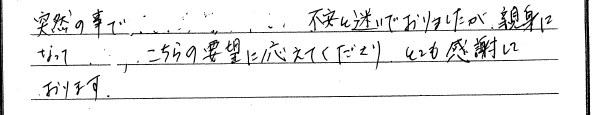 突然の事で 不安と迷いでおりましたが、親身に
なって、こちらの要望に応えてくださり とても感謝して
おります。